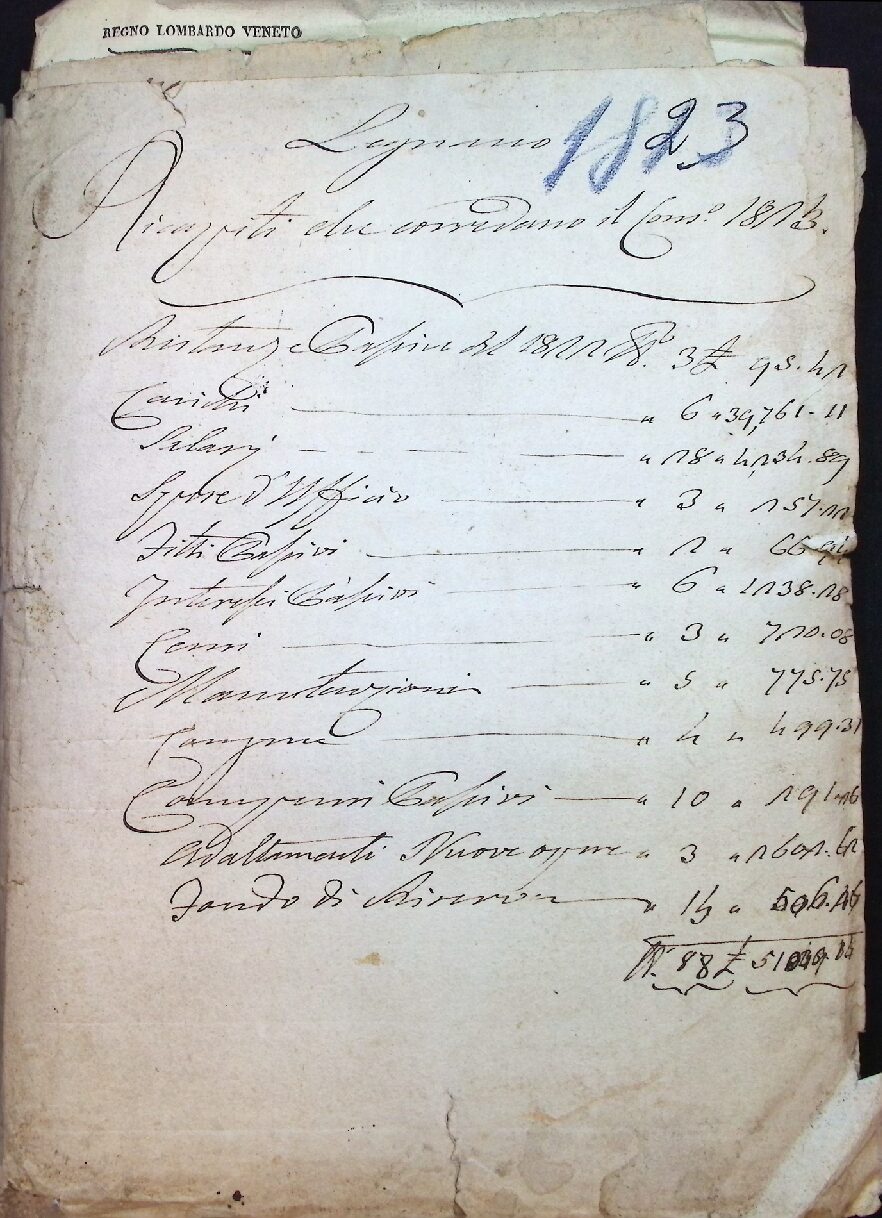 REGNO LOMBARDO VENETO
Legnano 1823
Ricapiti che corredano il Cons.o 1823.
Rimanenze Passive del 1822 N.o 3 £ 95.42
Carichi " 6 " 39,761.11
Salarj " 28 " 4,234.89
Spese d'Ufficio " 3 " 257.22
Fitti Passivi " 2 " 66.
Interessi Passivi " 6 " 1238.28
Censi " 3 " 720.08
Manutenzioni " 5 " 775.75
" 4 " 499.31
Compensi Passivi " 10 " 291.
Adattamenti Nuove opere " 3 " 2602.42
Fondo di Riserva " 14 " 506.46
N.o 88 £